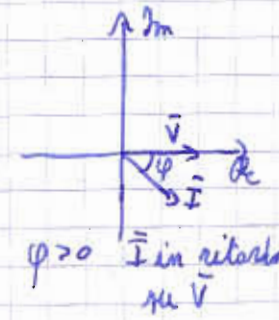 Im
V̄
Re
φ
Ī
φ>0 Ī in ritardo
su V̄